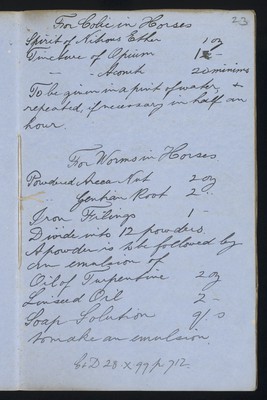 23
For Colic in Horses
Spirit of Nitrous Ether 1 oz
Tincture of Opium 1 -
- - Aconite 20 minims
To be given in a pint of water &
repeated, if necessary in half an
hour.
For Worms in Horses
Powdered Areca Nut 2 oz
Gentian Root 2 "
Iron Filings 1 -
Divide into 12 powders.
A powder is to be followed by
an emulsion of
Oil of Turpentine 2 oz
Linseed Oil 2 -
Soap Solution q/s
to make an emulsion.